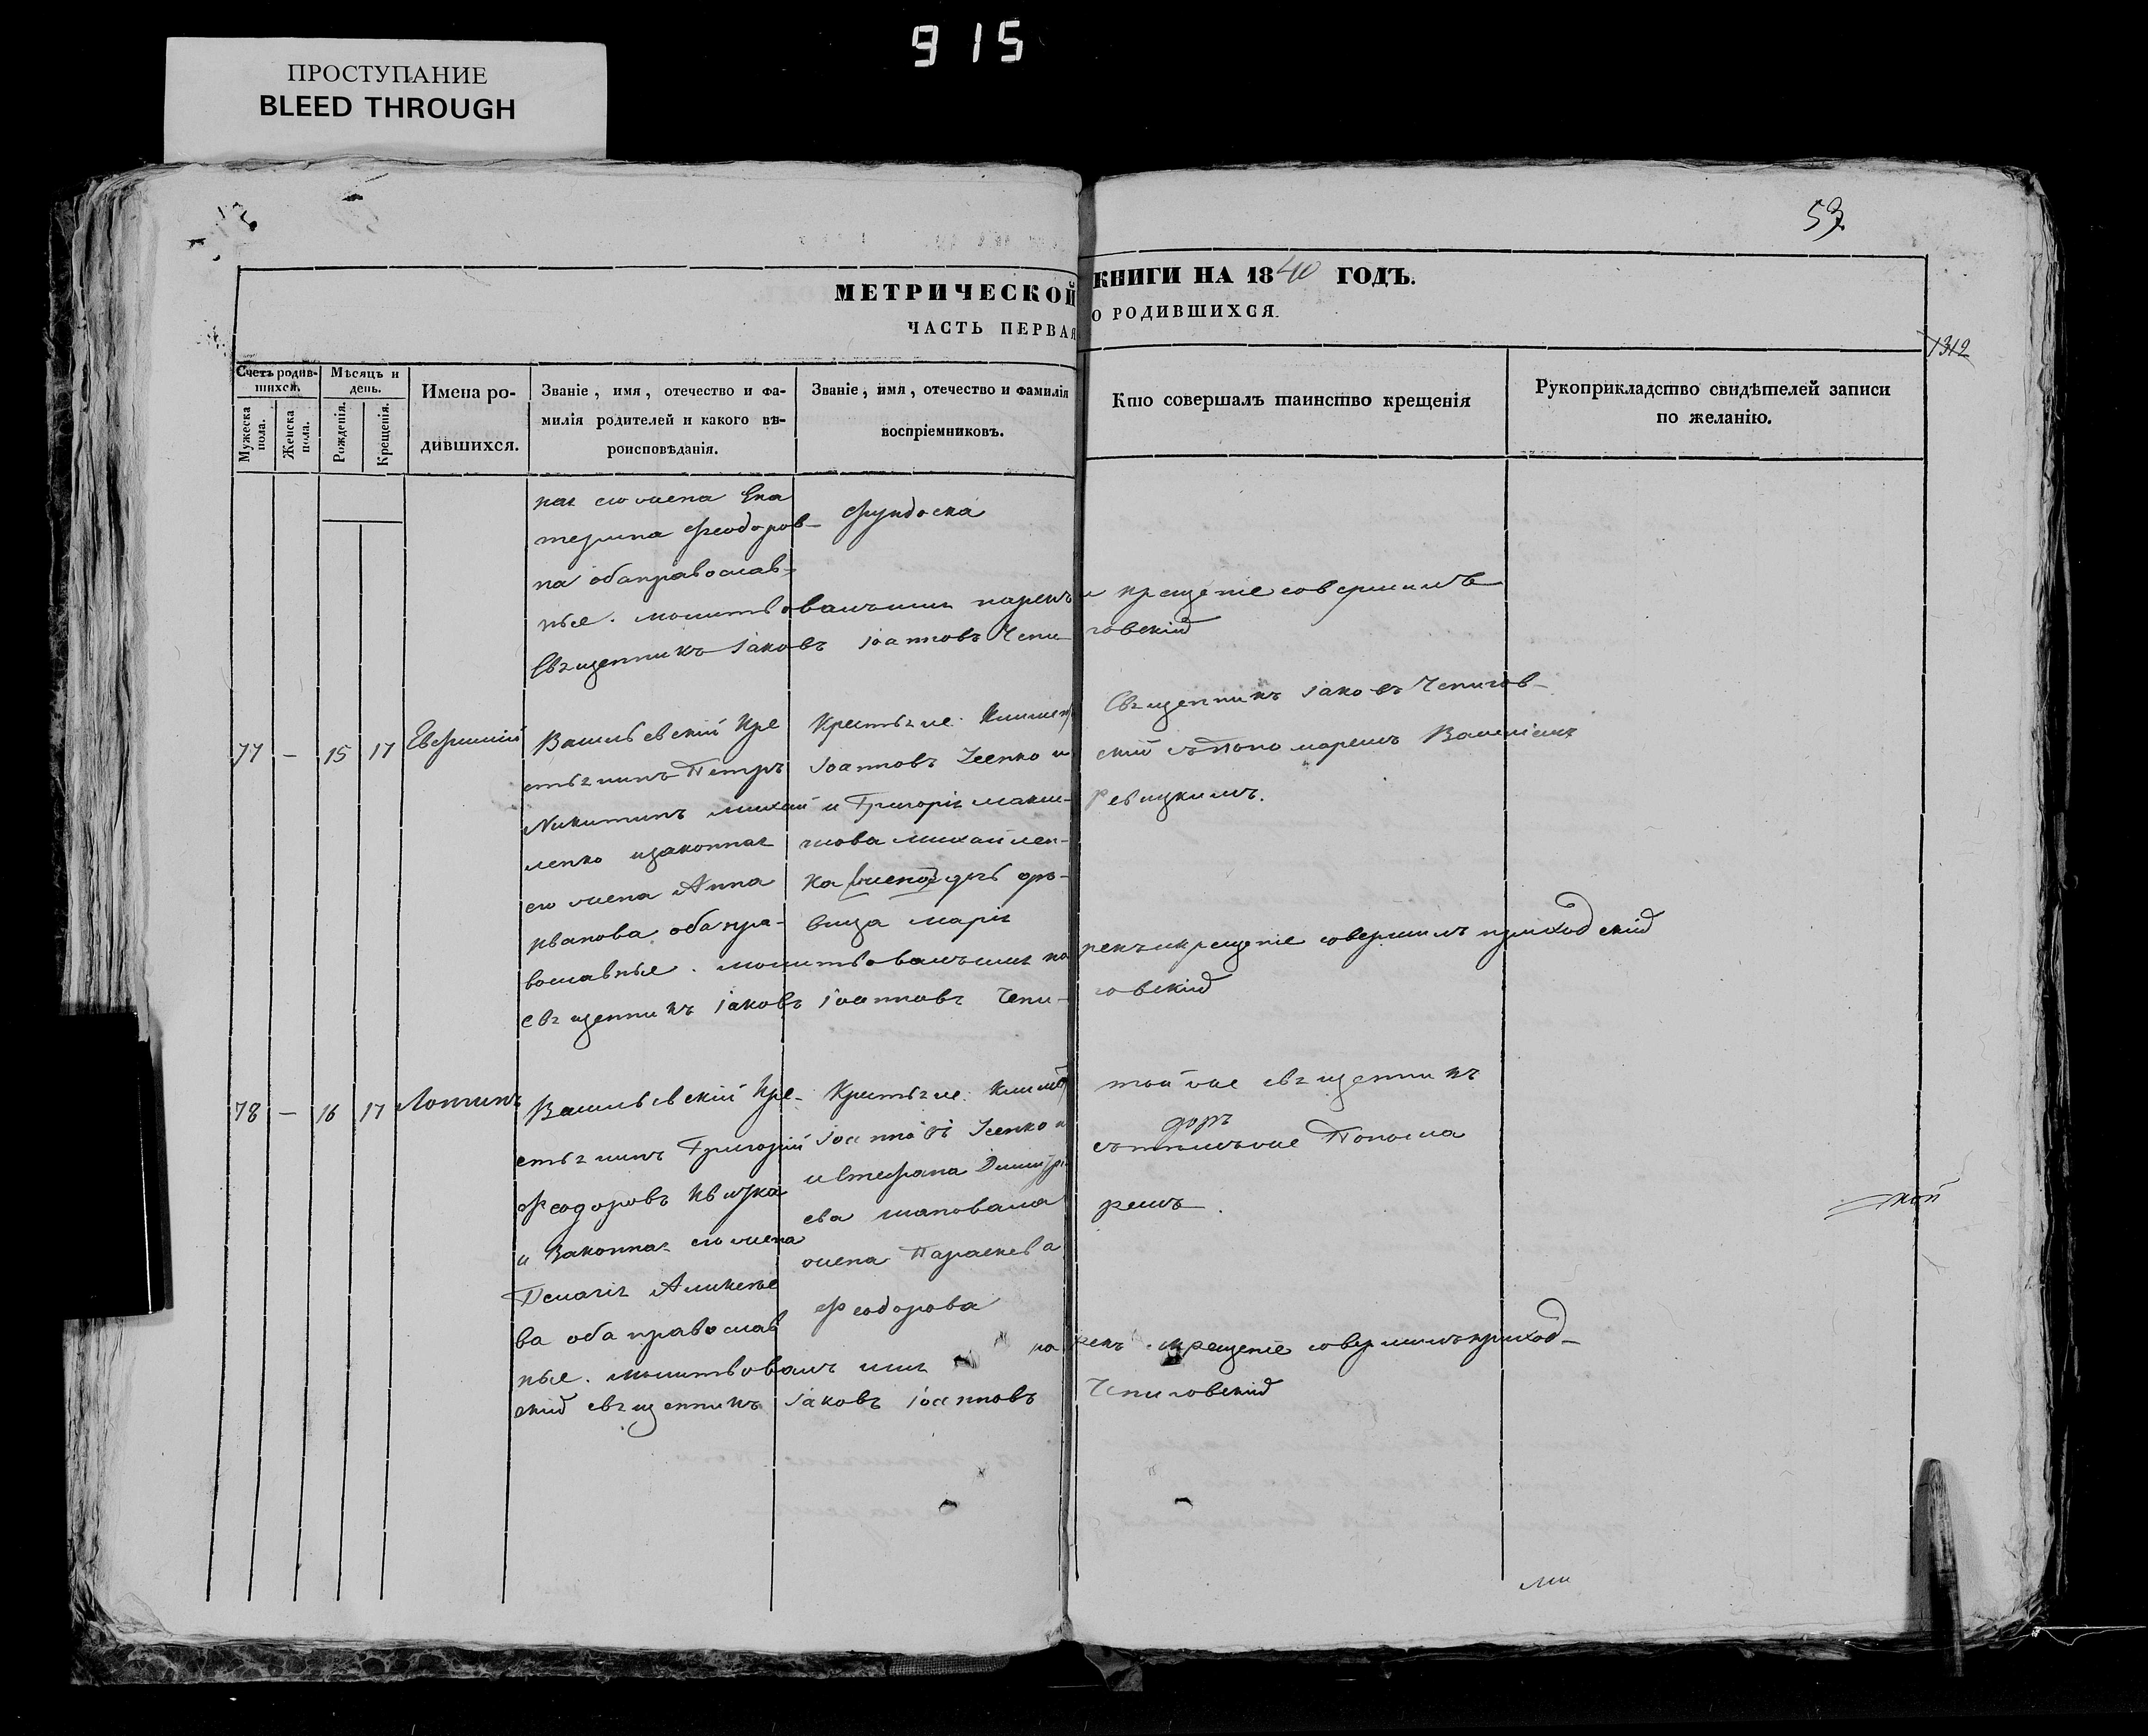 915
ПРОСТУПАНИЕ
BLEED THROUGH
53
МЕТРИЧЕСКОЙ КНИГИ НА 1840 ГОДЪ.
ЧАСТЬ ПЕРВАЯ О РОДИВШИХСЯ.
1312
Счетъ родившихся.
Мужеска пола.
Женска пола.
Мѣсяцъ и день.
Рожденія.
Крещенія.
Имена родившихся.
Званіе, имя, отечество и фамилія родителей и какого вѣроисповѣданія.
Званіе, имя, отечество и фамилія воспріемниковъ.
Кто совершалъ таинство крещенія
Рукоприкладство свидѣтелей записи по желанію.
ная его жена Ека
терина Феодоров-
на оба православ-
ные. молитвовалъ имя нарекъ и крещеніе совершилъ
Священникъ Іаковъ Іоанновъ Чепиговскій
77 — 15 17 Евфимій
Васильевскій кре
стянинъ Петръ
Никитинъ Михай
ленко и законная
его жена Анна
Иванова оба пра-
вославные. молитвовалъ имя нарекъ и крещеніе совершилъ приходскій
священникъ Іаковъ Іоанновъ Чепиговскій
Крестьяне Климентій
Іоанновъ Ісенко и
и Григорія Макси-
мова Михайлен-
ка
вица Марія
Священникъ Іаковъ Чепигов-
скій съ Пономаремъ Василіемъ
Ревицкимъ.
78 — 16 17 Логгинъ
Васильевскій кре-
стянинъ Григорій
Феодоровъ
и законная его жена
Пелагія Алексѣе
ва оба православ
ные. молитвовалъ имя нарекъ и крещеніе совершилъ приход-
скій священникъ Іаковъ Іоанновъ Чепиговскій
Крестьяне Климентій
Іоанновъ Ісенко и
и Стефана Димитрі
ева Шаповала
жена Параскева
Феодорова
той же священникъ
съ тѣмъ же Понома
ремъ.